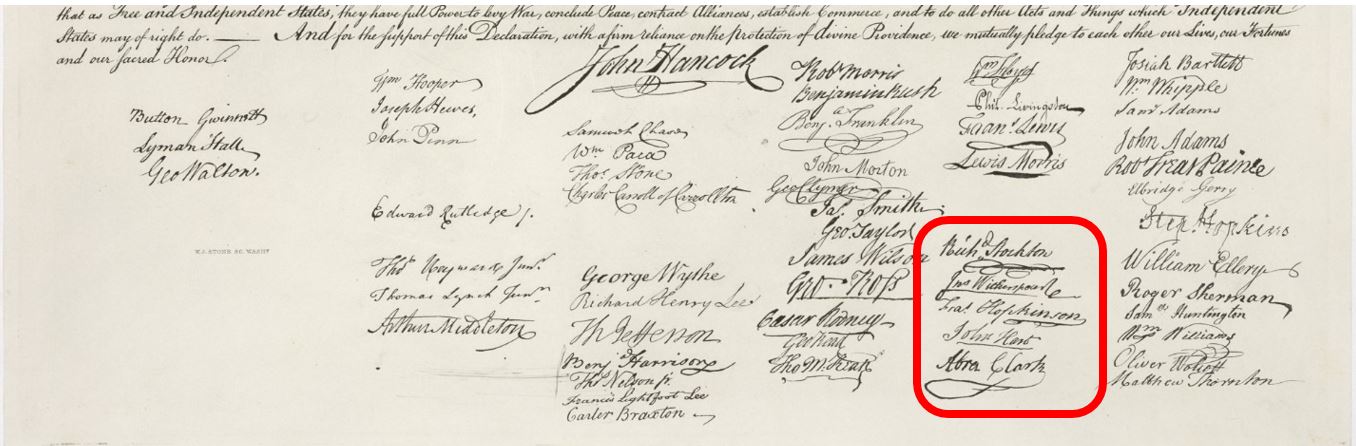 that as Free and Independent States, they have full Power to levy War, conclude Peace, contract Alliances, establish Commerce, and to do all other Acts and Things which Independent
States may of right do. — And for the support of this Declaration, with a firm reliance on the protection of divine Providence, we mutually pledge to each other our Lives, our Fortunes
and our sacred Honor.
Button Gwinnett
Lyman Hall
Geo Walton.
W.J. STONE SC. WASHN
Wm Hooper
Joseph Hewes,
John Penn
Edward Rutledge /.
Thos Heyward Junr.
Thomas Lynch Junr.
Arthur Middleton
John Hancock
Samuel Chase
Wm. Paca
Thos. Stone
Charles Carroll of Carrollton
George Wythe
Richard Henry Lee
Th Jefferson
Benj Harrison
Thos Nelson jr.
Francis Lightfoot Lee
Carter Braxton
Robt Morris
Benjamin Rush
Benj. Franklin
John Morton
Geo Clymer
Jas. Smith
Geo. Taylor
James Wilson
Geo. Ross
Caesar Rodney
Geo Read
Tho M:Kean
Wm Floyd
Phil. Livingston
Frans. Lewis
Lewis Morris
Richd Stockton
Jno Witherspoon
Fras. Hopkinson
John Hart
Abra Clark
Josiah Bartlett
Wm. Whipple
Saml Adams
John Adams
Robt Treat Paine
Elbridge Gerry
Step. Hopkins
William Ellery
Roger Sherman
Samel Huntington
Wm Williams
Oliver Wolcott
Matthew Thornton